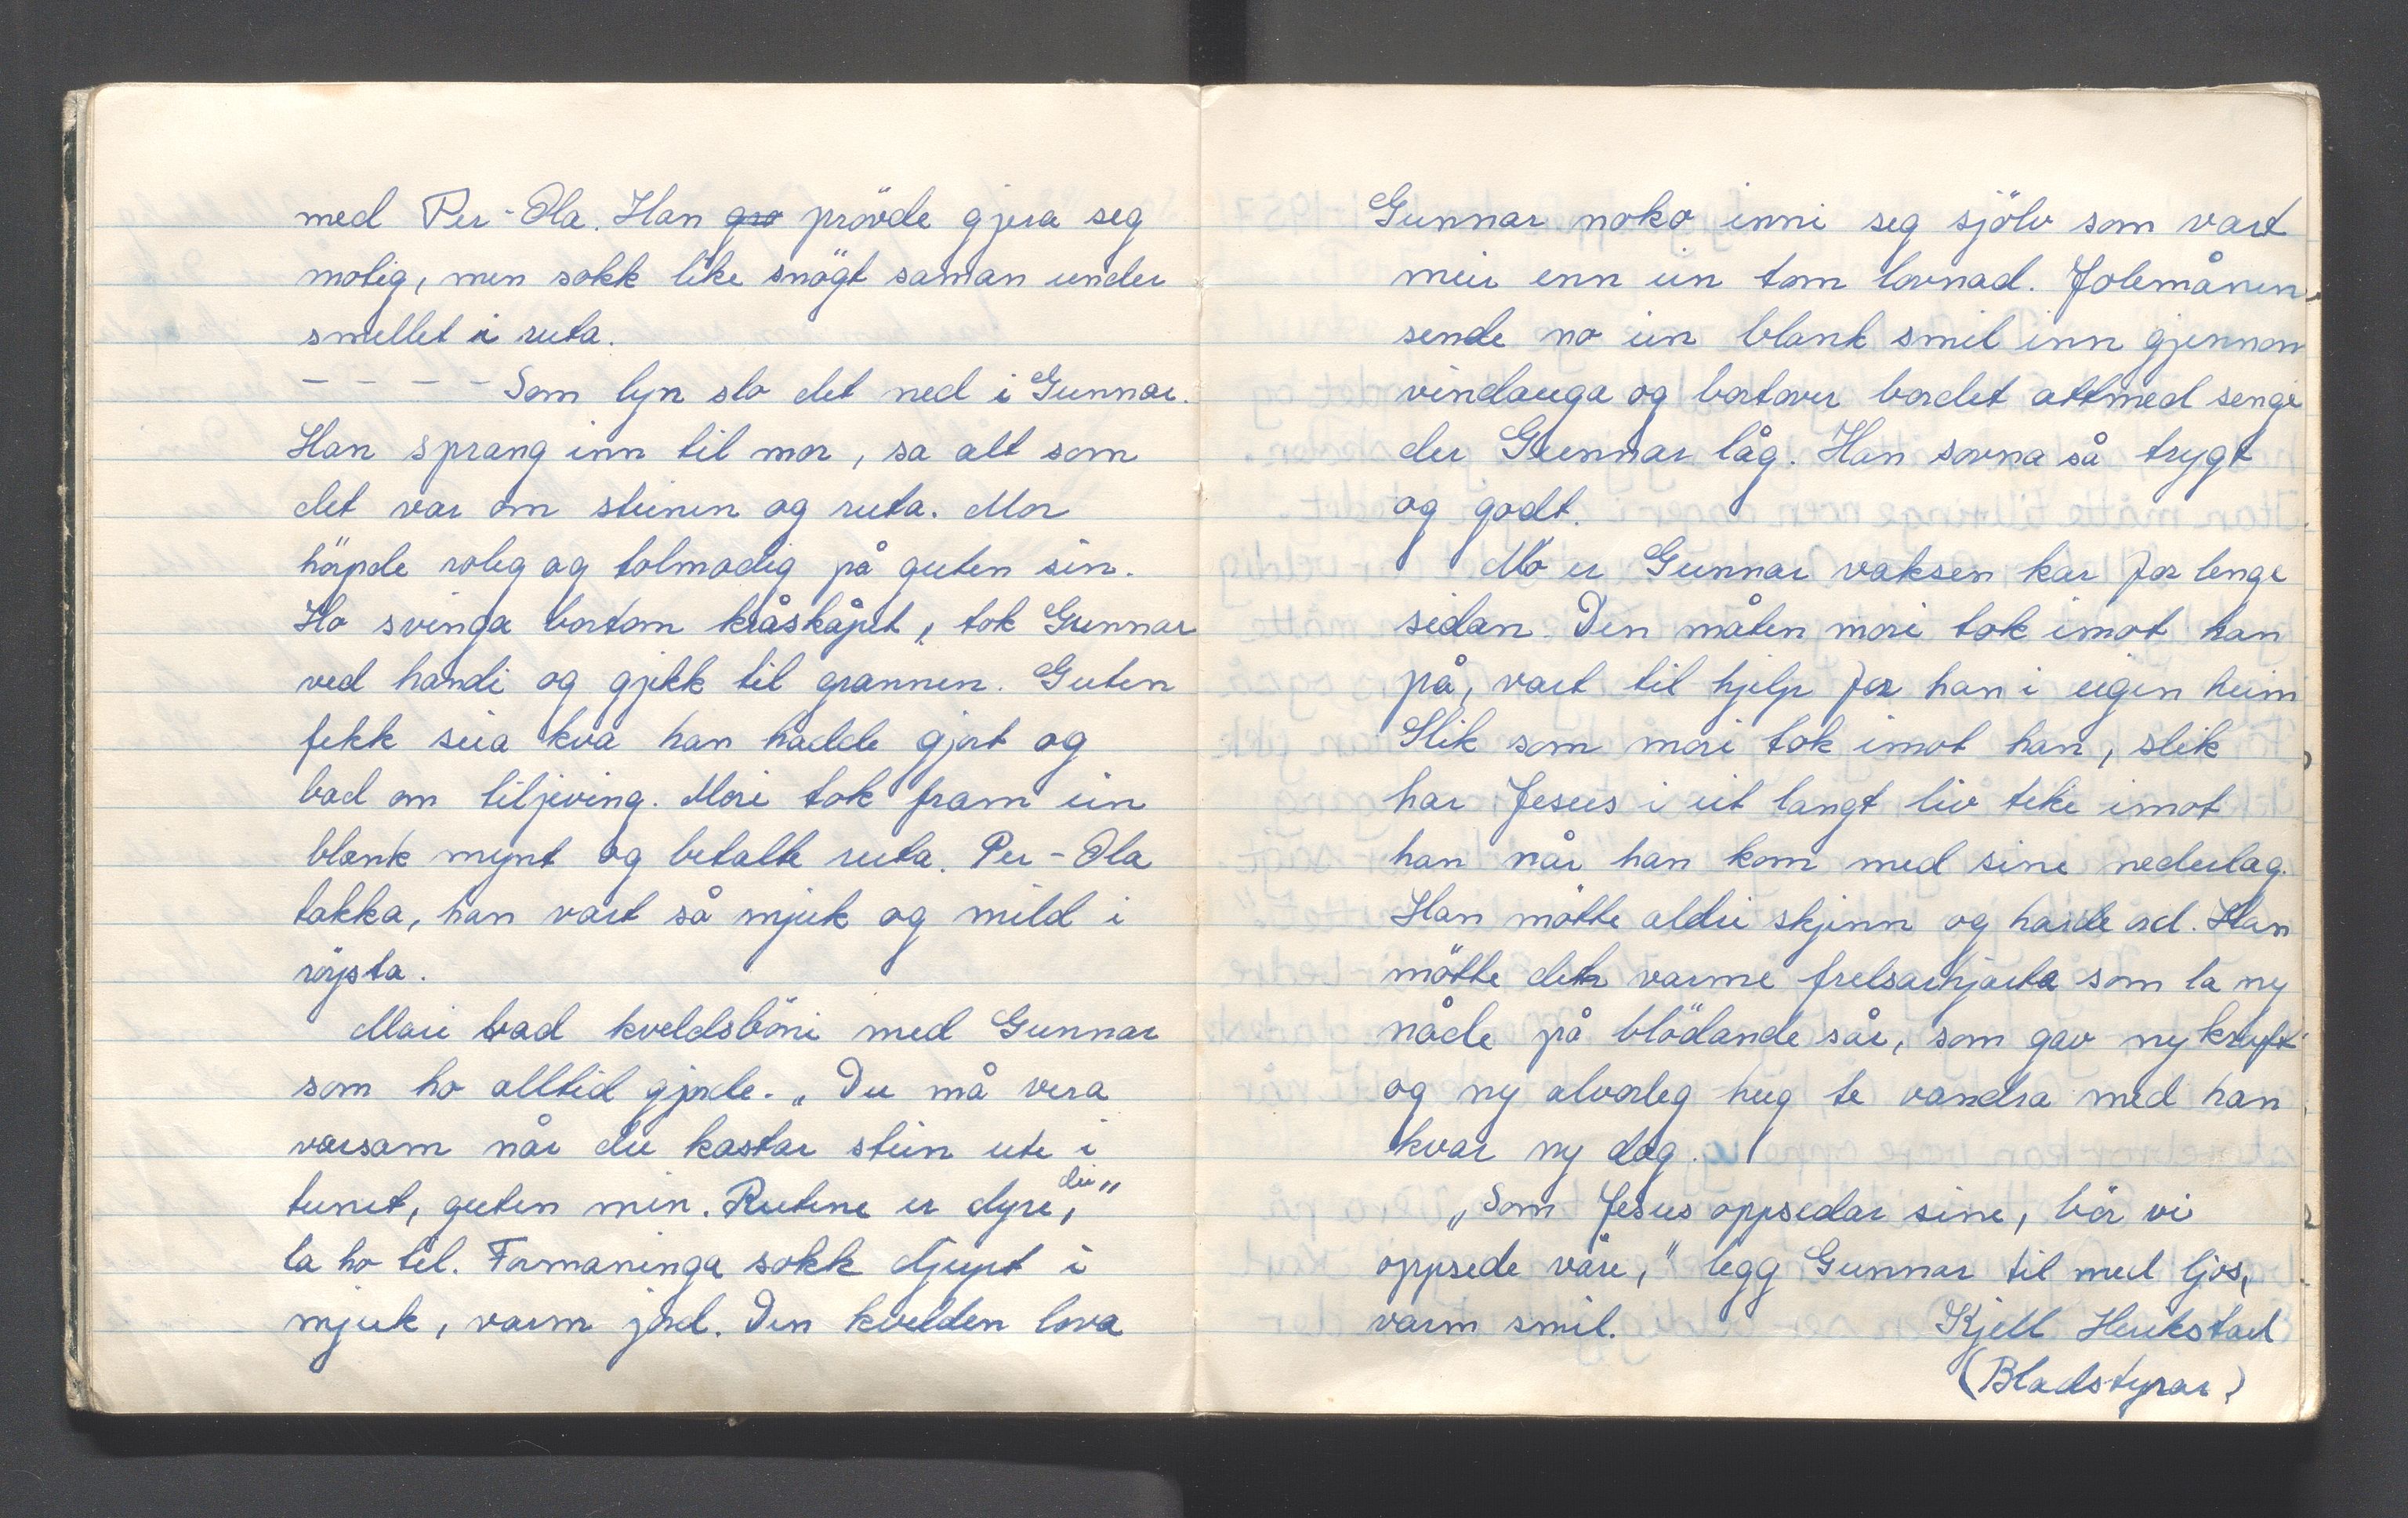 med Per-Ola. Han gro prövde gjera seg
molig, men sokk like snögt saman under
smellet i ruta.
- - - - Som lyn slo det ned i Gunnar.
Han sprang inn til mor, sa alt som
det var om steinen og ruta. Mor
höyrde roleg og tolmodig på guten sin.
Ho svinga bortom kråskåpet, tok Gunnar
ved handi og gjekk til grannen. Guten
fekk seia kva han hadde gjort og
bad om tiljeving. Mori tok fram ein
blank mynt og betalte ruta. Per-Ola
takka, han vart så mjuk og mild i
röysta.
Mori bad kveldsböni med Gunnar
som ho alltid gjorde. „Du må vera
varsam når du kastar stein ute i
tunet, guten min. Rutene er dyre, du"
la ho til. Formaninga sokk djupt i
mjuk, varm jord. Den kvelden lova
Gunnar noko inni seg sjölv som vart
meir enn ein tom lovnad. Jolemånen
sende no ein blank smil inn gjennom
vindauga og bortover bordet attmed senge
der Gunnar låg. Han sovna så trygt
og godt.
No er Gunnar vaksen kar for lenge
sidan. Den måten mori tok imot han
på, vart til hjelp for han i eigen heim
Slik som mori tok imot han, slik
har Jesus i eit langt liv teke imot
han når han kom med sine nederlag.
Han mötte aldri skjenn og harde ord. Han
mötte det varme frelsarhjarta som la ny
nåde på blödande sår, som gav ny kraft
og ny alvorleg hug te vandra med han
kvar ny dag.
„Som Jesus oppsedar sine, bör vi
oppsede våre," legg Gunnar til med ljos,
varm smil. Kjell Herikstad
(Bladstyrar)